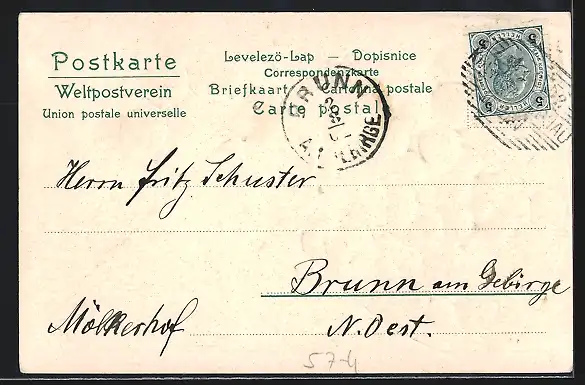 Postkarte
Weltpostverein
Union postale universelle
Levelezö-Lap — Dopisnice
Correspondenzkarte
Briefkaart — Cartolina postale
Carte postale
BRUNN
A. GEBIRGE
5 5
Herrn Fritz Schuster
Brunn am Gebirge
Mölkerhof N. Oest.
57-4